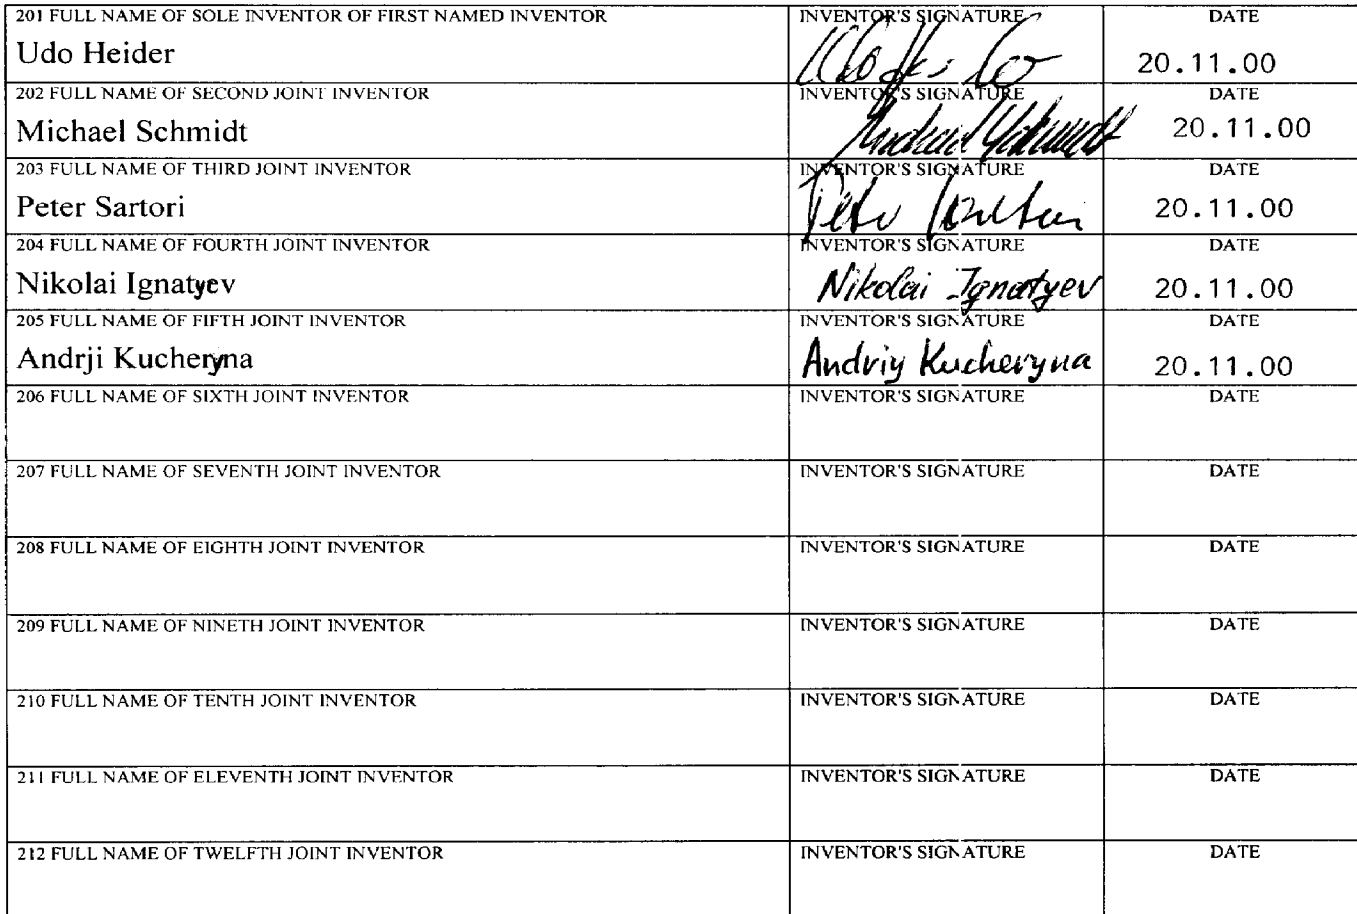 201 FULL NAME OF SOLE INVENTOR OF FIRST NAMED INVENTOR INVENTOR'S SIGNATURE DATE
Udo Heider 20.11.00
202 FULL NAME OF SECOND JOINT INVENTOR INVENTOR'S SIGNATURE DATE
Michael Schmidt Michael Schmidt 20.11.00
203 FULL NAME OF THIRD JOINT INVENTOR INVENTOR'S SIGNATURE DATE
Peter Sartori Peter Sartori 20.11.00
204 FULL NAME OF FOURTH JOINT INVENTOR INVENTOR'S SIGNATURE DATE
Nikolai Ignatyev Nikolai Ignatyev 20.11.00
205 FULL NAME OF FIFTH JOINT INVENTOR INVENTOR'S SIGNATURE DATE
Andrji Kucheryna Andriy Kucheryna 20.11.00
206 FULL NAME OF SIXTH JOINT INVENTOR INVENTOR'S SIGNATURE DATE
207 FULL NAME OF SEVENTH JOINT INVENTOR INVENTOR'S SIGNATURE DATE
208 FULL NAME OF EIGHTH JOINT INVENTOR INVENTOR'S SIGNATURE DATE
209 FULL NAME OF NINETH JOINT INVENTOR INVENTOR'S SIGNATURE DATE
210 FULL NAME OF TENTH JOINT INVENTOR INVENTOR'S SIGNATURE DATE
211 FULL NAME OF ELEVENTH JOINT INVENTOR INVENTOR'S SIGNATURE DATE
212 FULL NAME OF TWELFTH JOINT INVENTOR INVENTOR'S SIGNATURE DATE